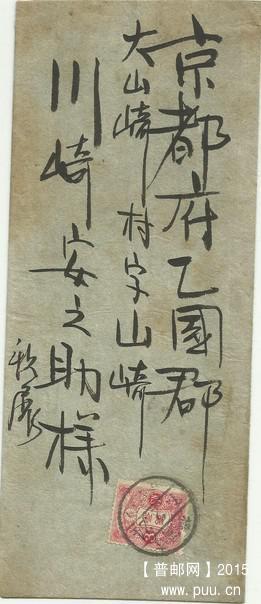 京都府乙國郡
大山崎村字山崎
川崎安之助様
親展
【普邮网】2015
www.puu.cn